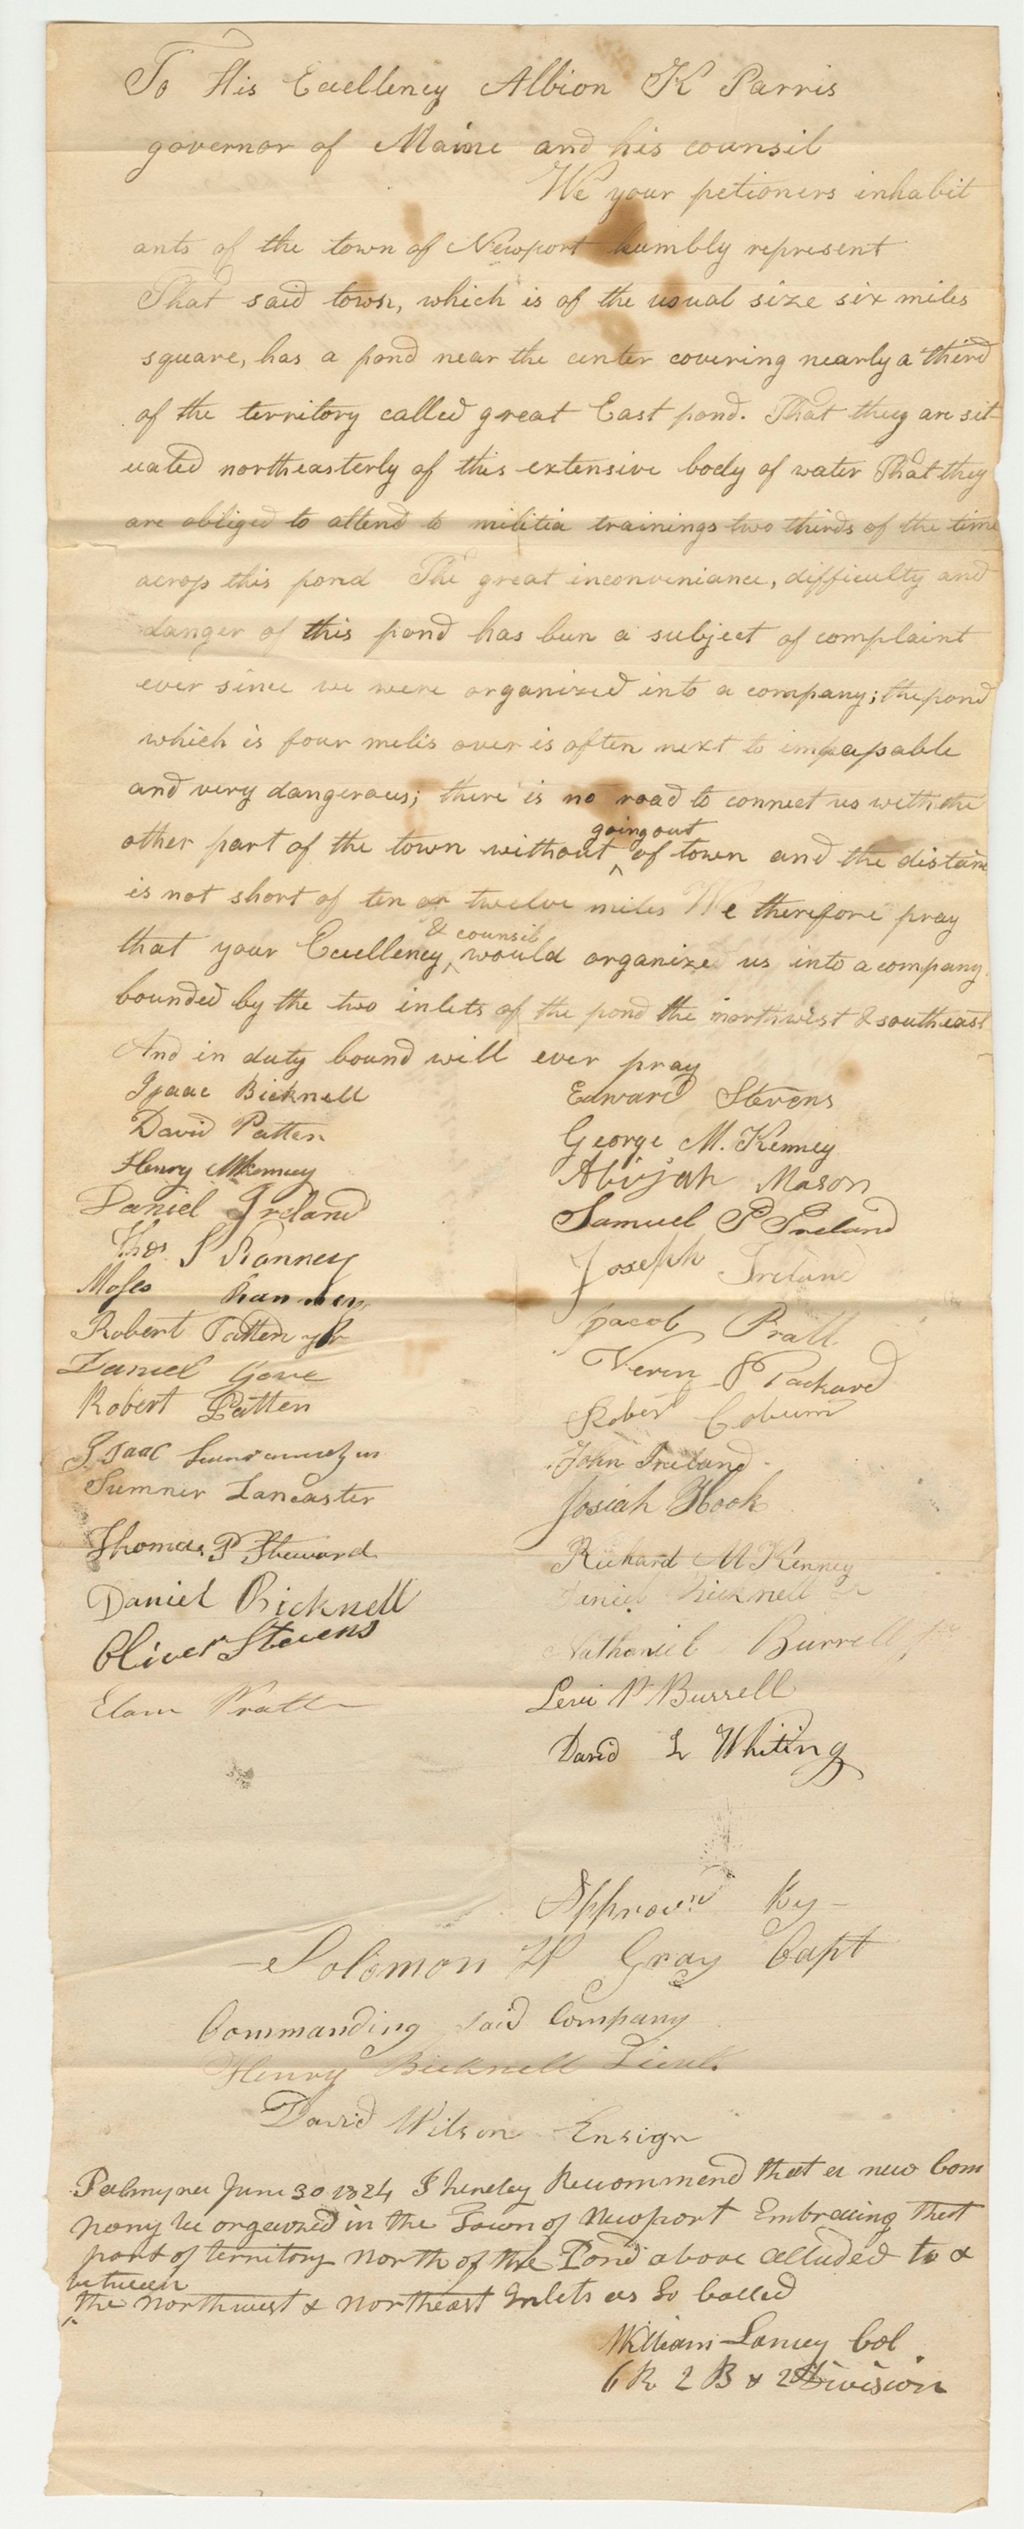 To His Excellency Albion K Parris
governor of Maine and his counsil
We your petioners inhabit
ants of the town of Newport humbly represent
That said town, which is of the usual size six miles
square, has a pond near the center covering nearly a third
of the territory called great East pond. That they are sit
uated northeasterly of this extensive body of water That they
are obliged to attend to militia trainings two thirds of the time
across this pond The great inconveniance, difficulty and
danger of this pond has been a subject of complaint
ever since we were organized into a company; the pond
which is four melis over is often next to impassable
and very dangerous; there is no road to connect us with the
going out
other part of the town without ^ of town and the distance
is not short of ten or twelve miles We therefore pray
& counsil
that your Excellency ^ would organize us into a company
bounded by the two inlets of the pond the northwist & southeast
And in duty bound will ever pray
Isaac Bicknell
Edward Stevens
David Patten
George M. Kenney
Henry Mkenney
Abijah Mason
Daniel Ireland
Samuel P Ireland
Thos S Ranney
Joseph Ireland
Moses Ranney
Jacob Pratt
Robert Patten jr
Daniel Gove
Packard
Robert Patten
Robert Coburn
Isaac
John Ireland
Sumner Lancaster
Josiah Hook
Thomas P Steward
Richard McKenney
Daniel Bicknell
Daniel Bicknell Jr
Oliver Stevens
Nathaniel Burrell Jr
Elam Pratt
Levi P Burrell
David L Whiting
Approvd by
Solomon H Gray Capt
Commanding said Company
Henry Bicknell Lieut.
David Wilson Ensign
Palmyra June 30 1824 I hereby Recommend that a new Com
pany be organized in the Town of Newport Embraceing that
part of territory North of the Pond above alluded to &
between
^ the northwest & northeast Inlets as So Called
William Lancey Col
6 R 2 B & 2 Division